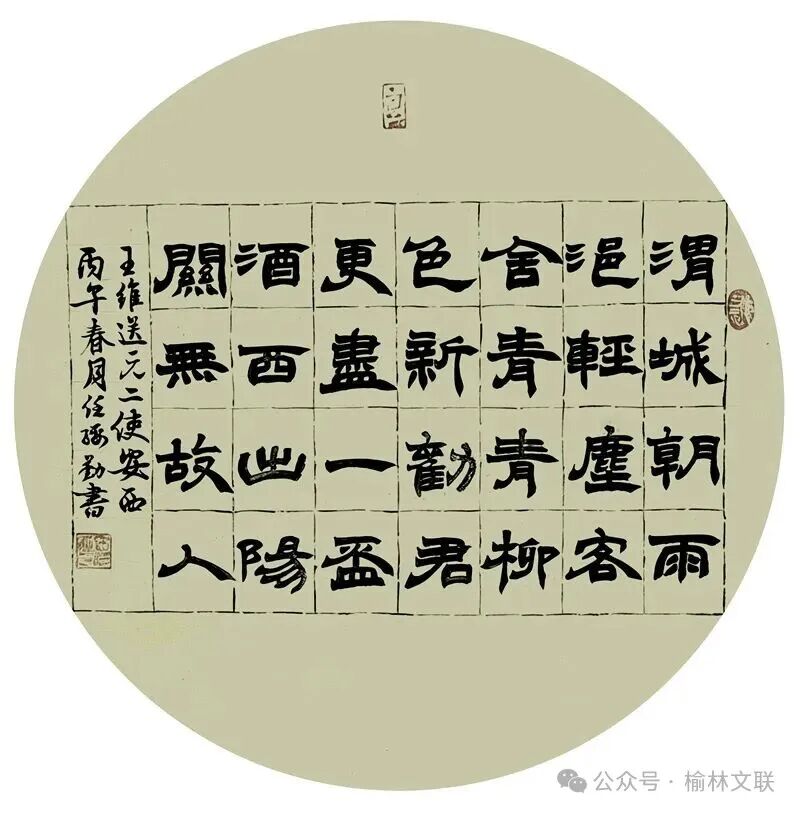 渭城朝雨
浥輕塵客
舍青青柳
色新勸君
更盡一盃
酒西出陽
關無故人
王維送元二使安西
丙午春月任勤書
公众号·榆林文联